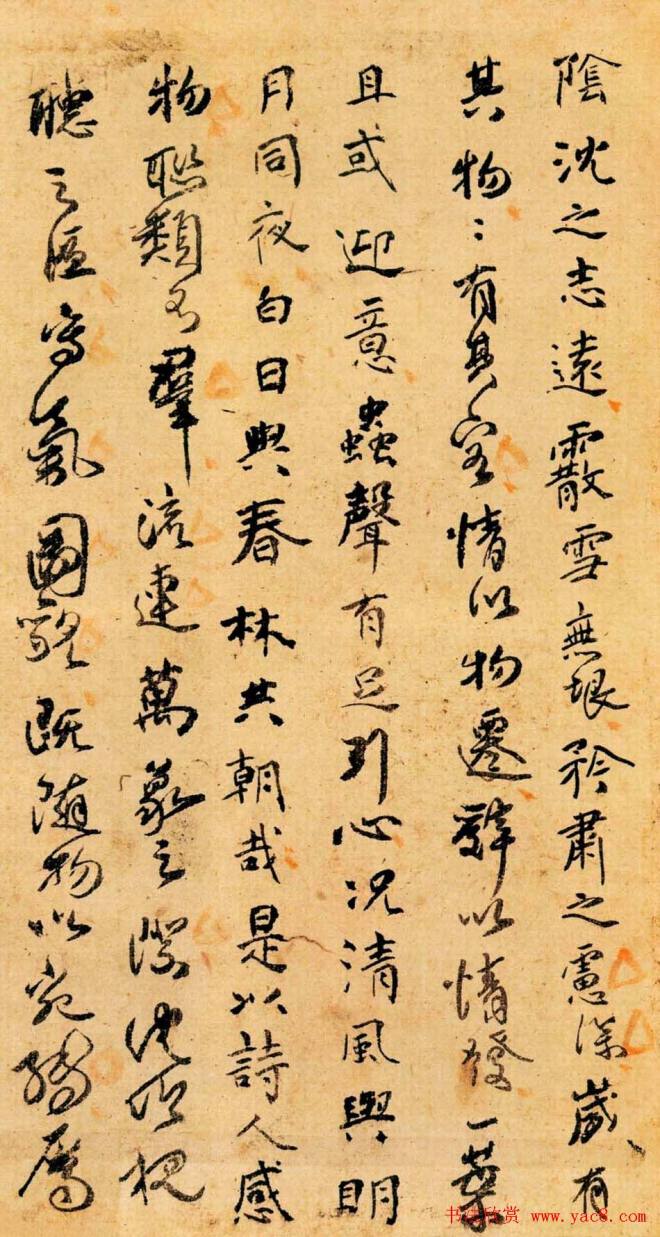 陰沈之志遠霰雪無垠矜肅之慮深歲有
其物〻有其容情以物遷辭以情發一葉
且或迎意蟲聲有足引心況清風與明
月同夜白日與春林共朝哉是以詩人感
物聯類不羣流連萬象之際沈吟視
聽之區寫氣圖貌既隨物以宛轉屬
书法欣赏 www.yac8.com